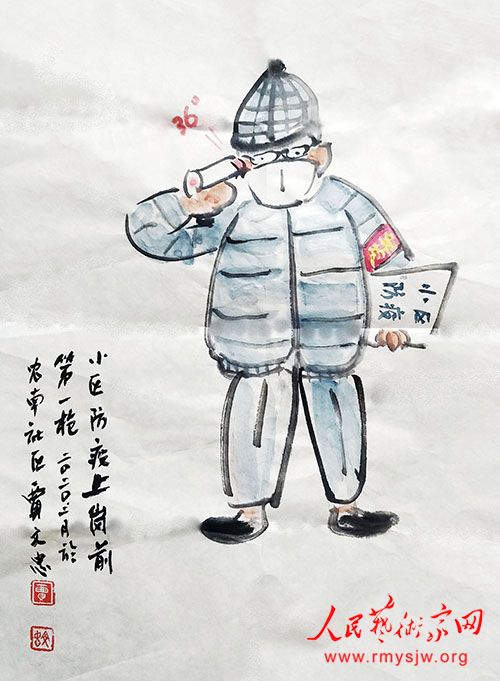 36°
小区
防疫
小区防疫上岗前
第一枪 二〇二〇二月於
农南社区 贾文忠
人民藝術家网
www.rmysjw.org